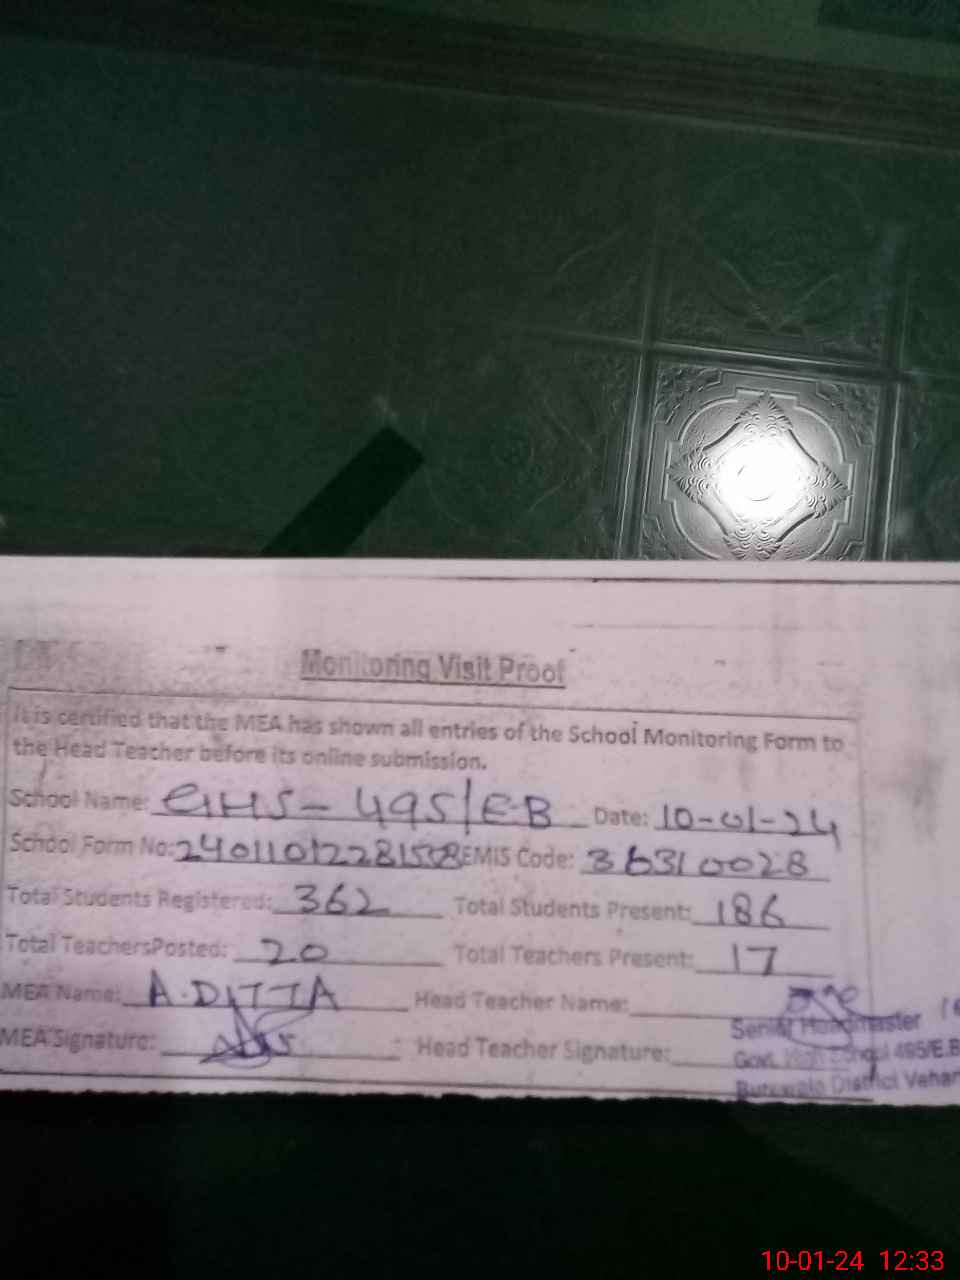 Monitoring Visit Proof
It is certified that the MEA has shown all entries of the School Monitoring Form to
the Head Teacher before its online submission.
School Name: GHS - 495/E-B Date: 10-01-24
School Form No: EMIS Code: 36310028
Total Students Registered: 362 Total Students Present: 186
Total TeachersPosted: 20 Total Teachers Present: 17
MEA Name: A.DITTA Head Teacher Name:
MEA Signature: Head Teacher Signature:
Senior Headmaster
Govt. High School 495/E.B
District Vehar
10-01-24 12:33